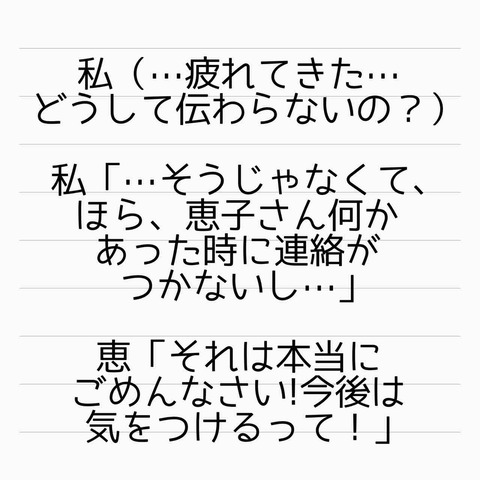 私（…疲れてきた…
どうして伝わらないの？）
私「…そうじゃなくて、
ほら、恵子さん何か
あった時に連絡が
つかないし…」
恵「それは本当に
ごめんなさい!今後は
気をつけるって！」